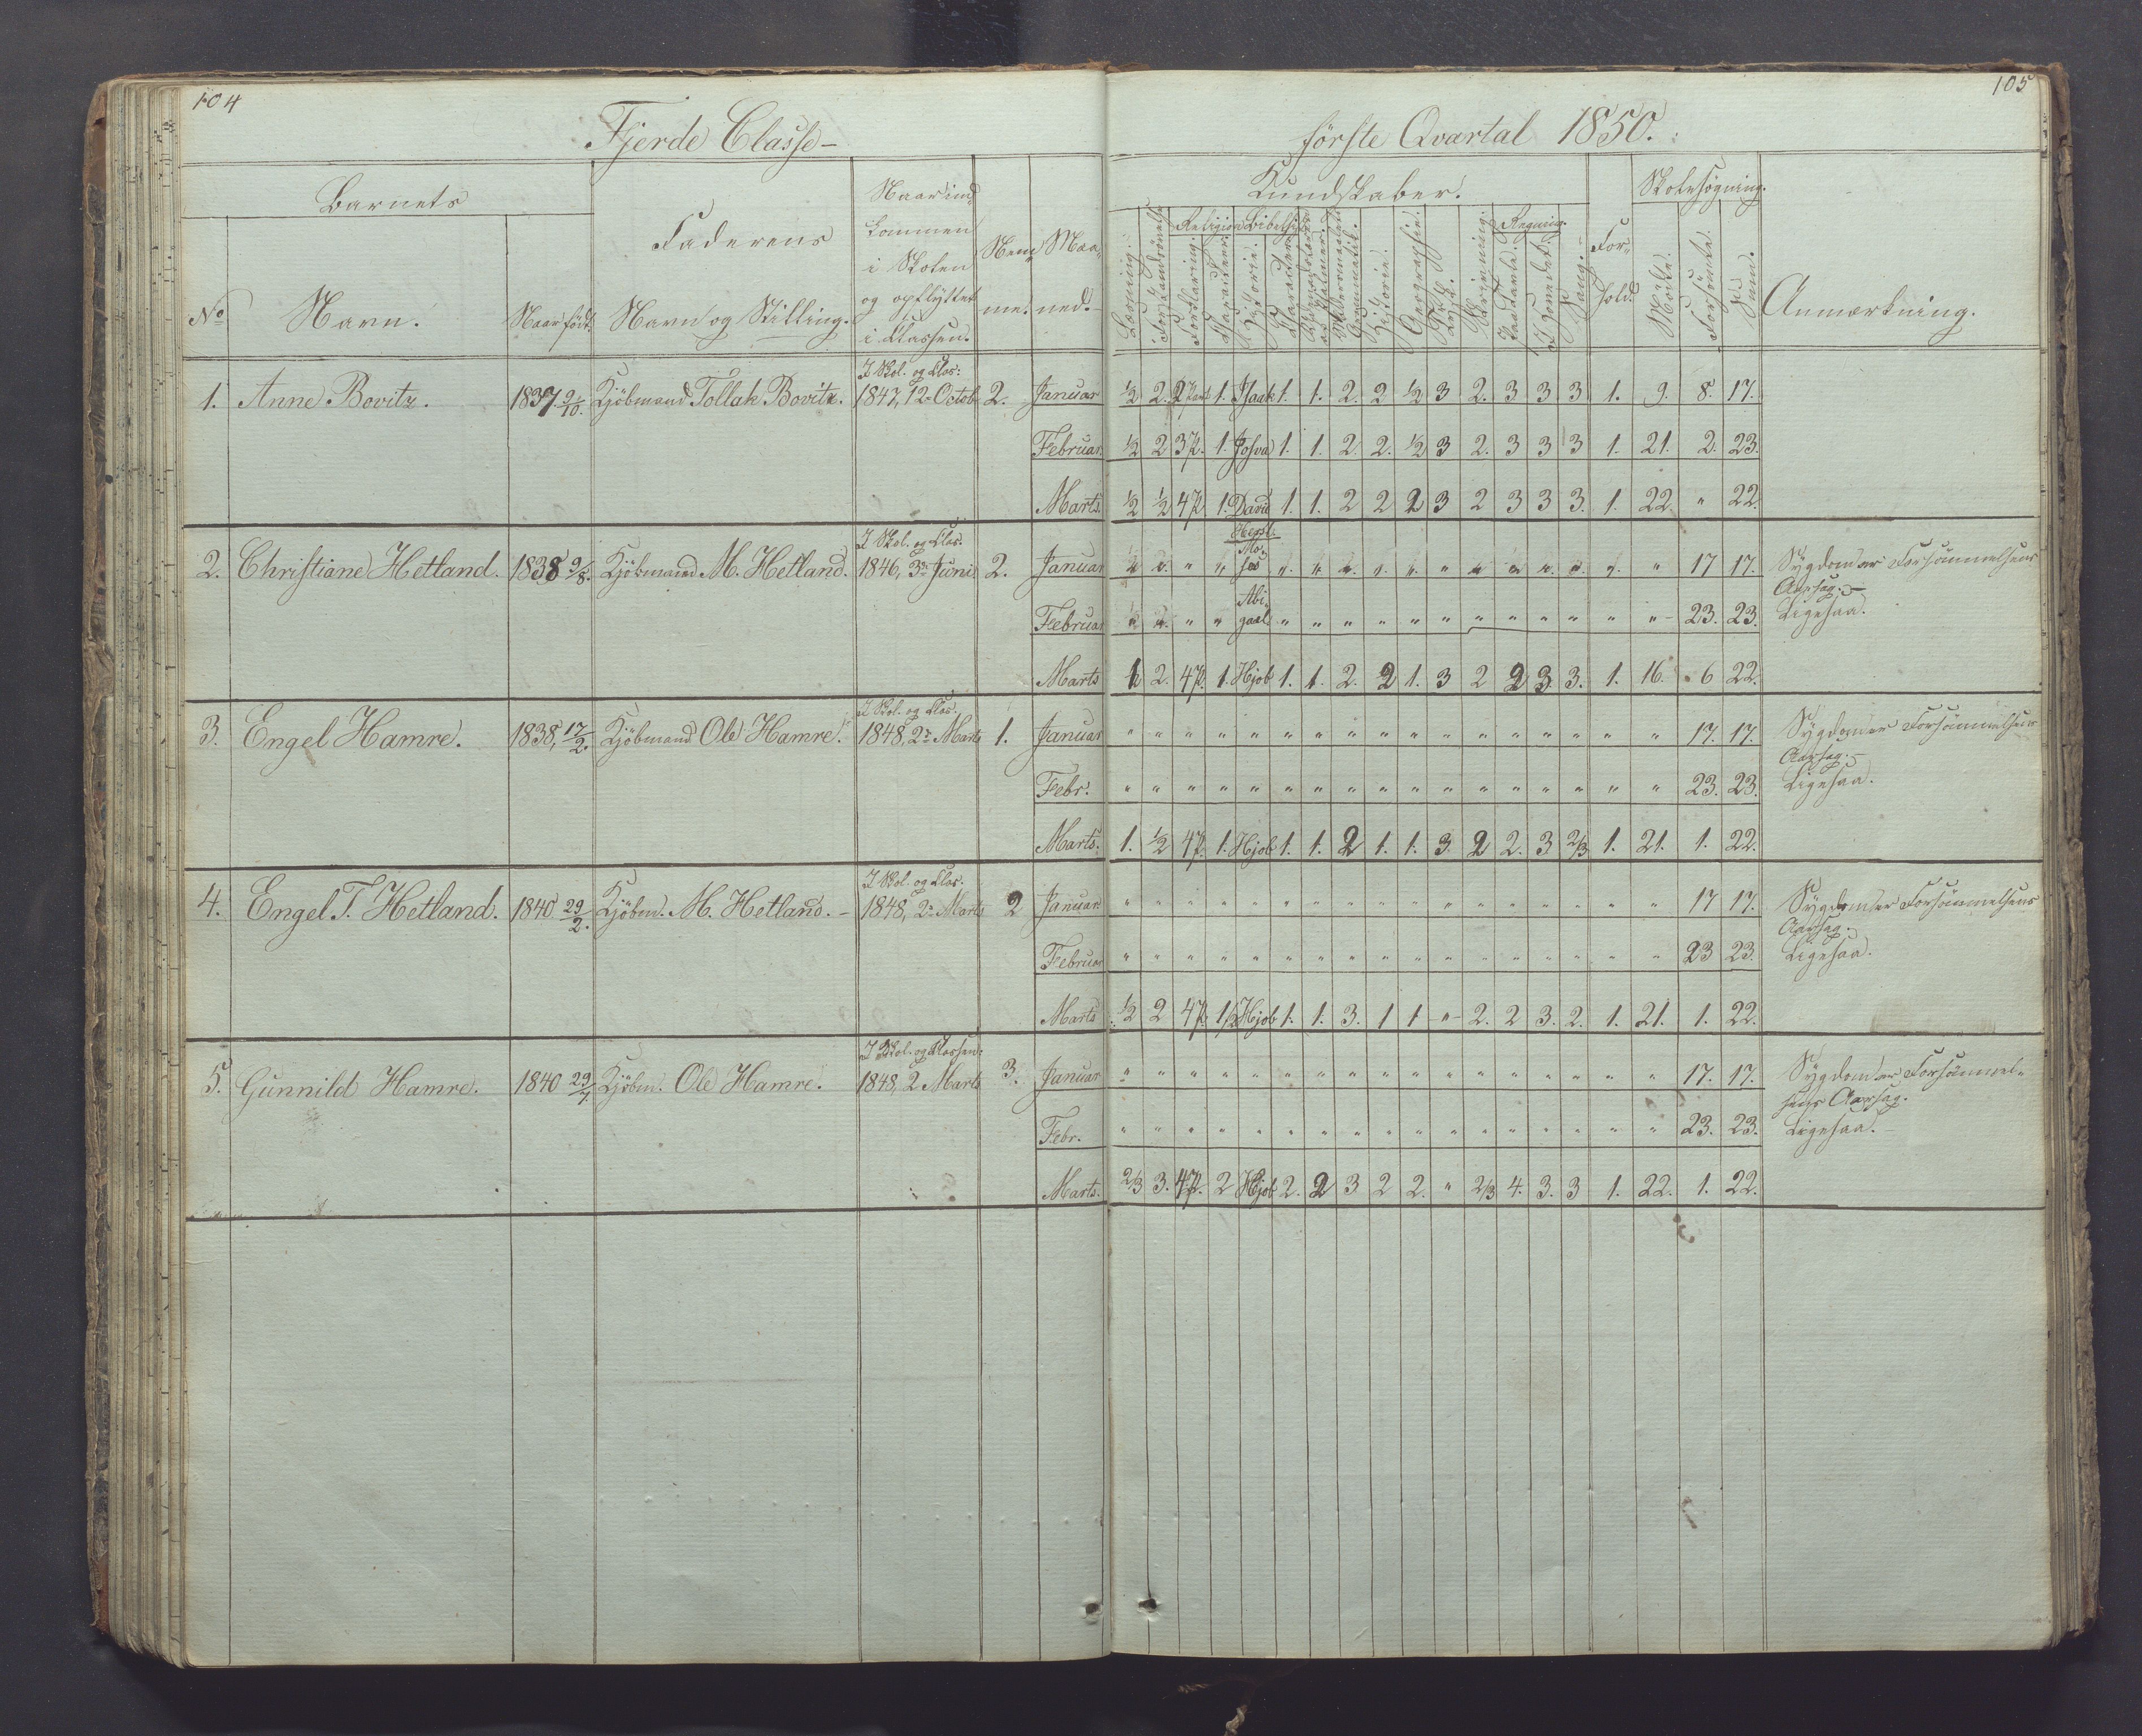 104
105
Fjerde Classe - förste Qvartal 1850.
Barnets
Faderens
Naar ind-
kommen
i Skolen
og opflyttet
i Classen.
Nem-
me.
Maa-
ned.
Kundskaber.
For-
hold.
Skolesøgning.
Anmærkning.
No
Navn.
Naar født.
Navn og Stilling.
Læsning.
Religion
Forklaring.
Charakteer.
Bibelhist.
Historie.
Charakteer
Grammatik.
Historie.
Geographie.
Skrivning.
Regning.
Paa Tavle.
I Hovedet.
Sang.
Mødte.
Forsømte.
Sum.
I Skol. og Clas:
1. Anne Bovitz. 1837 9/10. Kjöbmand Tollak Bovitz. 1847, 12 Octob 2. Januar 1/2 2. 1. Isaak 1. 1. 2. 2 1/2 3 2. 3 3 3 1. 9. 8. 17.
Februar. 1/2 2 3 P. 1. Josva 1. 1. 2. 2. 1/2 3 2. 3 3 3 1. 21. 2. 23.
Marts. 1/2 1/2 4 P. 1. David 1. 1. 2 2 2 3 2 3 3 3. 1. 22. " 22.
I Skol. og Clas.
2. Christiane Hetland. 1838 9/8. Kjöbmand M. Hetland. 1846, 3 Juni 2. Januar Mo-
ses 17 17. Sygdom er Forsömmelsens
Aarsag. -
Februar Abi-
gael " " " " " " " " " " " " 23. 23. Ligesaa.
Marts 2. 4 P. 1. Hjob 1. 1. 2. 2 1. 3 2 2 3 3. 1. 16. 6 22.
I Skol. og Clas.
3. Engel Hamre. 1838, 17/2. Kjöbmand Ole Hamre. 1848, 2 Marts 1. Januar " " " " " " " " " " " " " " " " " 17. 17. Sygdom er Forsömmelsens
Aarsag. -
Febr. " " " " " " " " " " " " " " " " " 23. 23. Ligesaa.
Marts. 1. 1/2 4 P. 1. Hjob 1. 1. 2 1. 1. 3. 2 2. 3 2/3 1. 21. 1. 22.
I Skol. og Clas.
4. Engel T. Hetland. 1840 29/2. Kjöbm. M. Hetland. - 1848, 2 Marts 2 Januar " " " " " " " " " " " " " " " " " 17 17. Sygdom er Forsömmelsens
Aarsag.
Februar " " " " " " " " " " " " " " " " " 23 23. Ligesaa.
Marts 1/2 2 4 P. 1/2 Hjob 1. 1. 3. 1 1 " 2. 2 3. 2. 1. 21. 1. 22.
I Skol. og Classen:
5. Gunnild Hamre. 1840 29/7. Kjöbm. Ole Hamre. 1848, 2 Marts 3. Januar " " " " " " " " " " " " " " " " " 17. 17. Sygdom er Forsömmel-
sens Aarsag.
Febr. " " " " " " " " " " " " " " " " " 23. 23. Ligesaa. -
Marts. 2/3 3. 4 P. 2 Hjob 2. 2 3 2 2. " 2/3 4. 3. 3 1. 22. 1. 22.